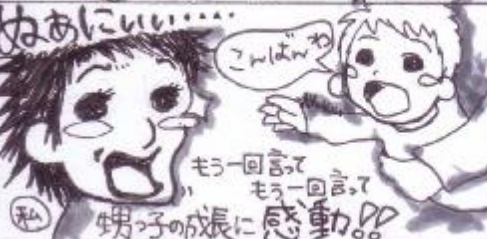 ぬぁにいぃ・・・・
こんばんわ
もう一回言って
もう一回言って
私
甥っ子の成長に感動!!